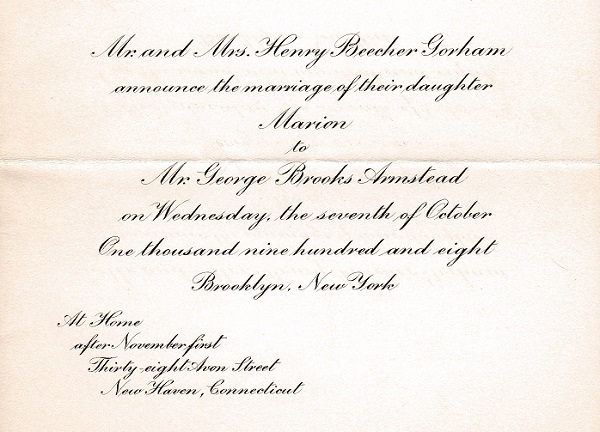 Mr. and Mrs. Henry Beecher Gorham
announce the marriage of their daughter
Marion
to
Mr. George Brooks Armstead
on Wednesday, the seventh of October
One thousand nine hundred and eight
Brooklyn, New York
At Home
after November first
Thirty-eight Avon Street
New Haven, Connecticut